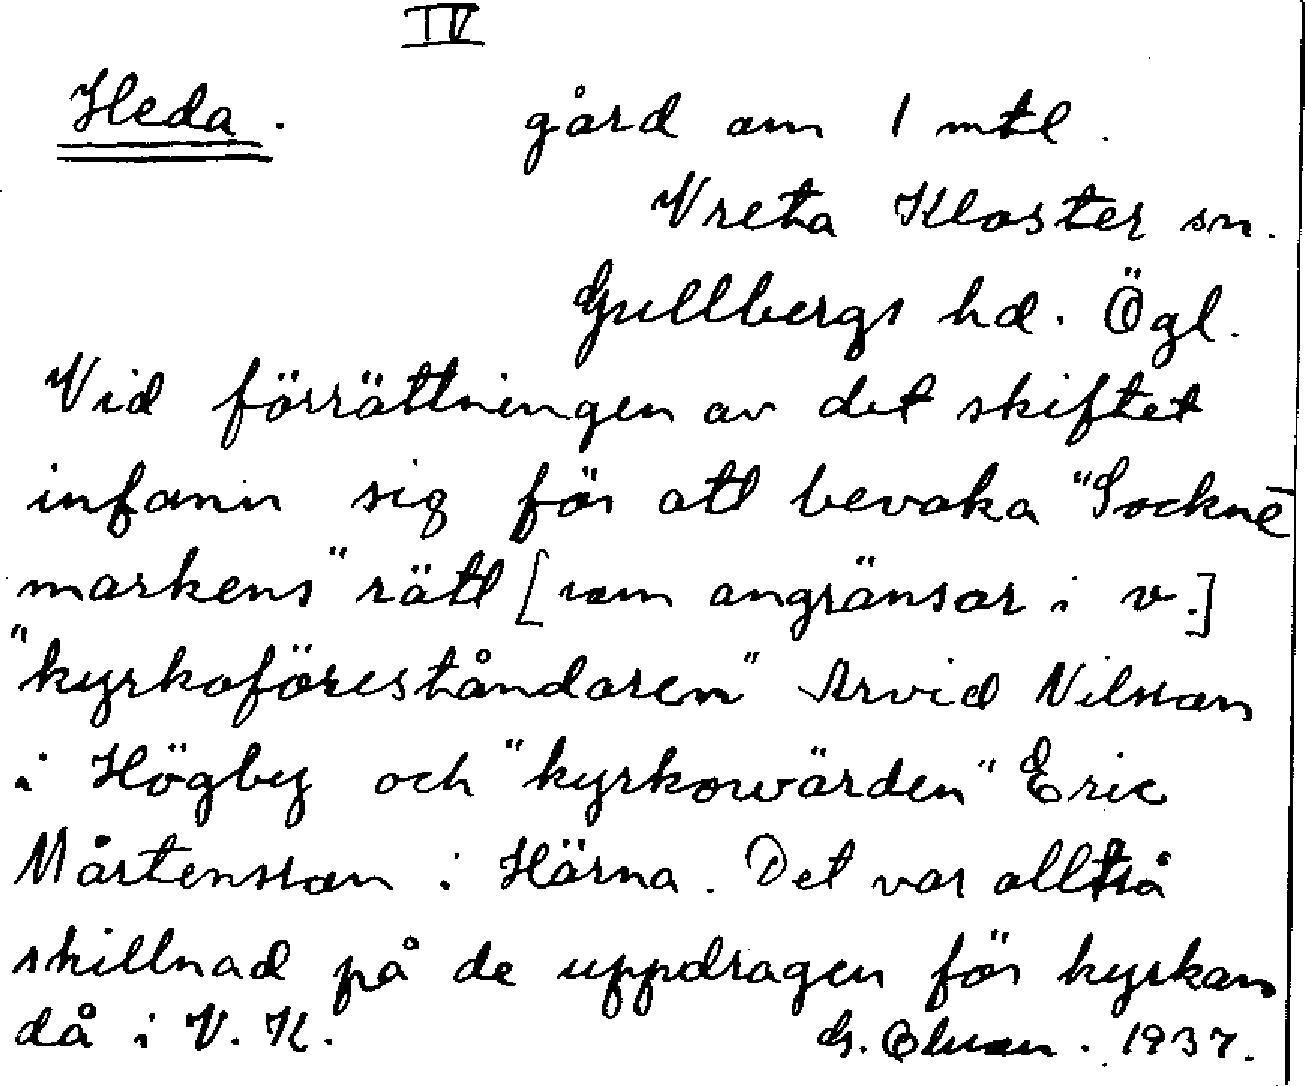 IV
Heda. gård om 1 mtl.
Vreta Kloster sn.
Gullbergs hd. Ögl.
Vid förrättningen av det skiftet
infann sig för att bevaka "Sockne-
markens" rätt [som angränsar i v.]
"kyrkoföreståndaren" Arvid Nilsson
i Högby och "kyrkowärden" Eric
Mårtensson i Härna. Det var alltså
skillnad på de uppdragen för kyrkan
då i V. K. G. Olsson. 1937.